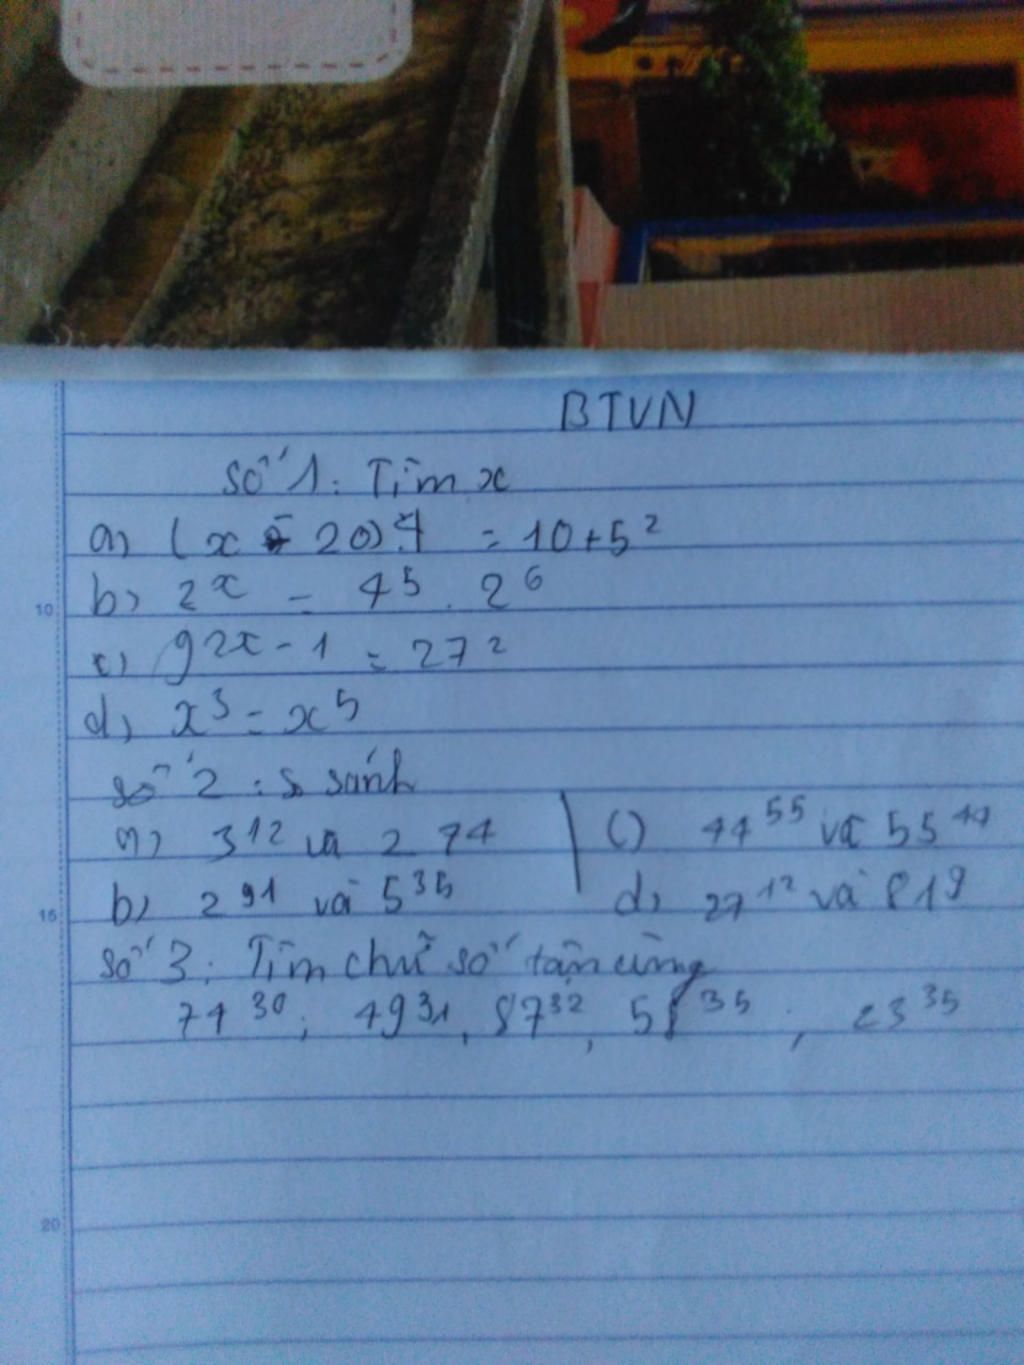 BTVN
Số 1: Tìm x
a) (x - 20).4 = 10 + 5²
b) 2ˣ = 4⁵ . 2⁶
c) 9²ˣ⁻¹ = 27²
d) x³ = x⁵
Số 2: So sánh
a) 3¹² và 274
b) 2⁹¹ và 5³⁵
c) 44⁵⁵ và 55⁴⁴
d) 27¹² và 81⁹
Số 3: Tìm chữ số tận cùng
74³⁰; 49³¹, 87³², 58³⁵; 23³⁵
10
15
20